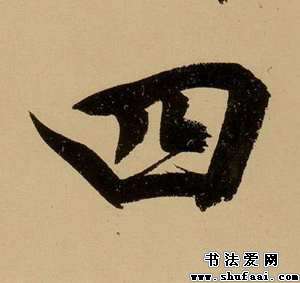 四
书法爱网
www.shufaai.com